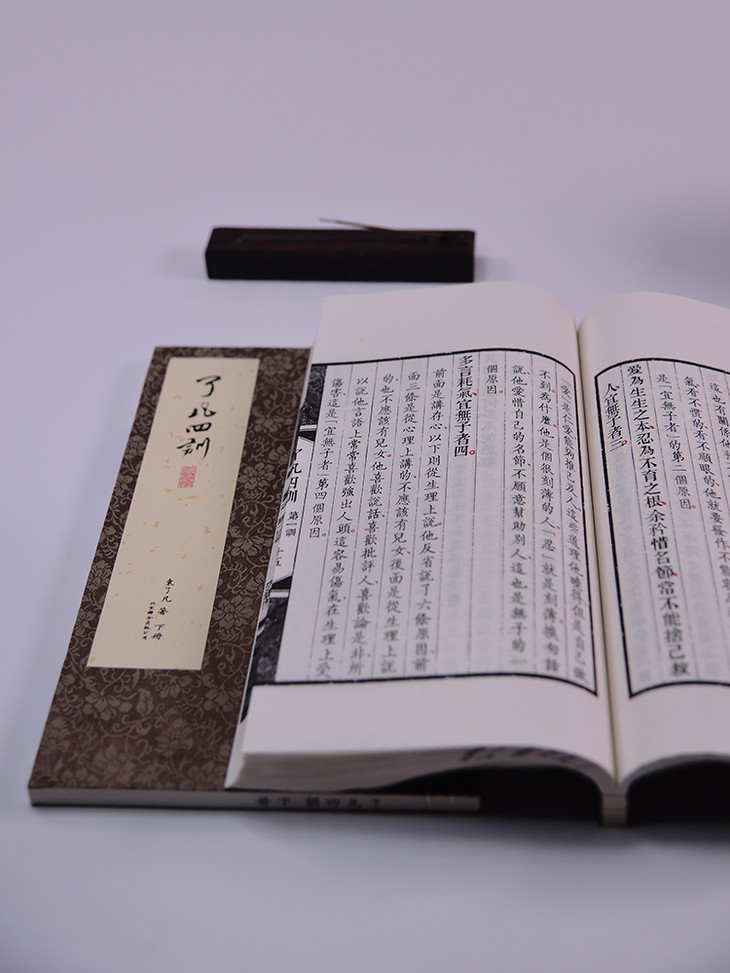 這也有關係他
氣看不慣的看不順眼的他就要發作不能
是「宜無子者」的第二個原因。
愛為生生之本、忍為不育之根、余矜惜名節、常不能捨己救
人、宜無子者三。
「愛」是仁愛、能夠推己及人、這些道理他曉得、但是自己做
不到、為什麼、他是個很刻薄的人、「忍」就是刻薄、換句話
說、他愛惜自己的名節、不願意幫助別人、這也是無子的一
個原因。
多言耗氣、宜無子者四。
前面是講存心、以下則從生理上說、他反省說了六條原因、前
面三條是從心理上講的、不應該有兒女、後面是從生理上說
的、也不應該有兒女、他喜歡說話、喜歡批評人、喜歡論是非、所
以說他言語上常常喜歡強出人頭、這容易傷氣、在生理上受
傷害、這是「宜無子者」第四個原因。
了凡四訓 第一訓 十五
了凡四訓
袁了凡 著 下冊
了凡四訓 下冊